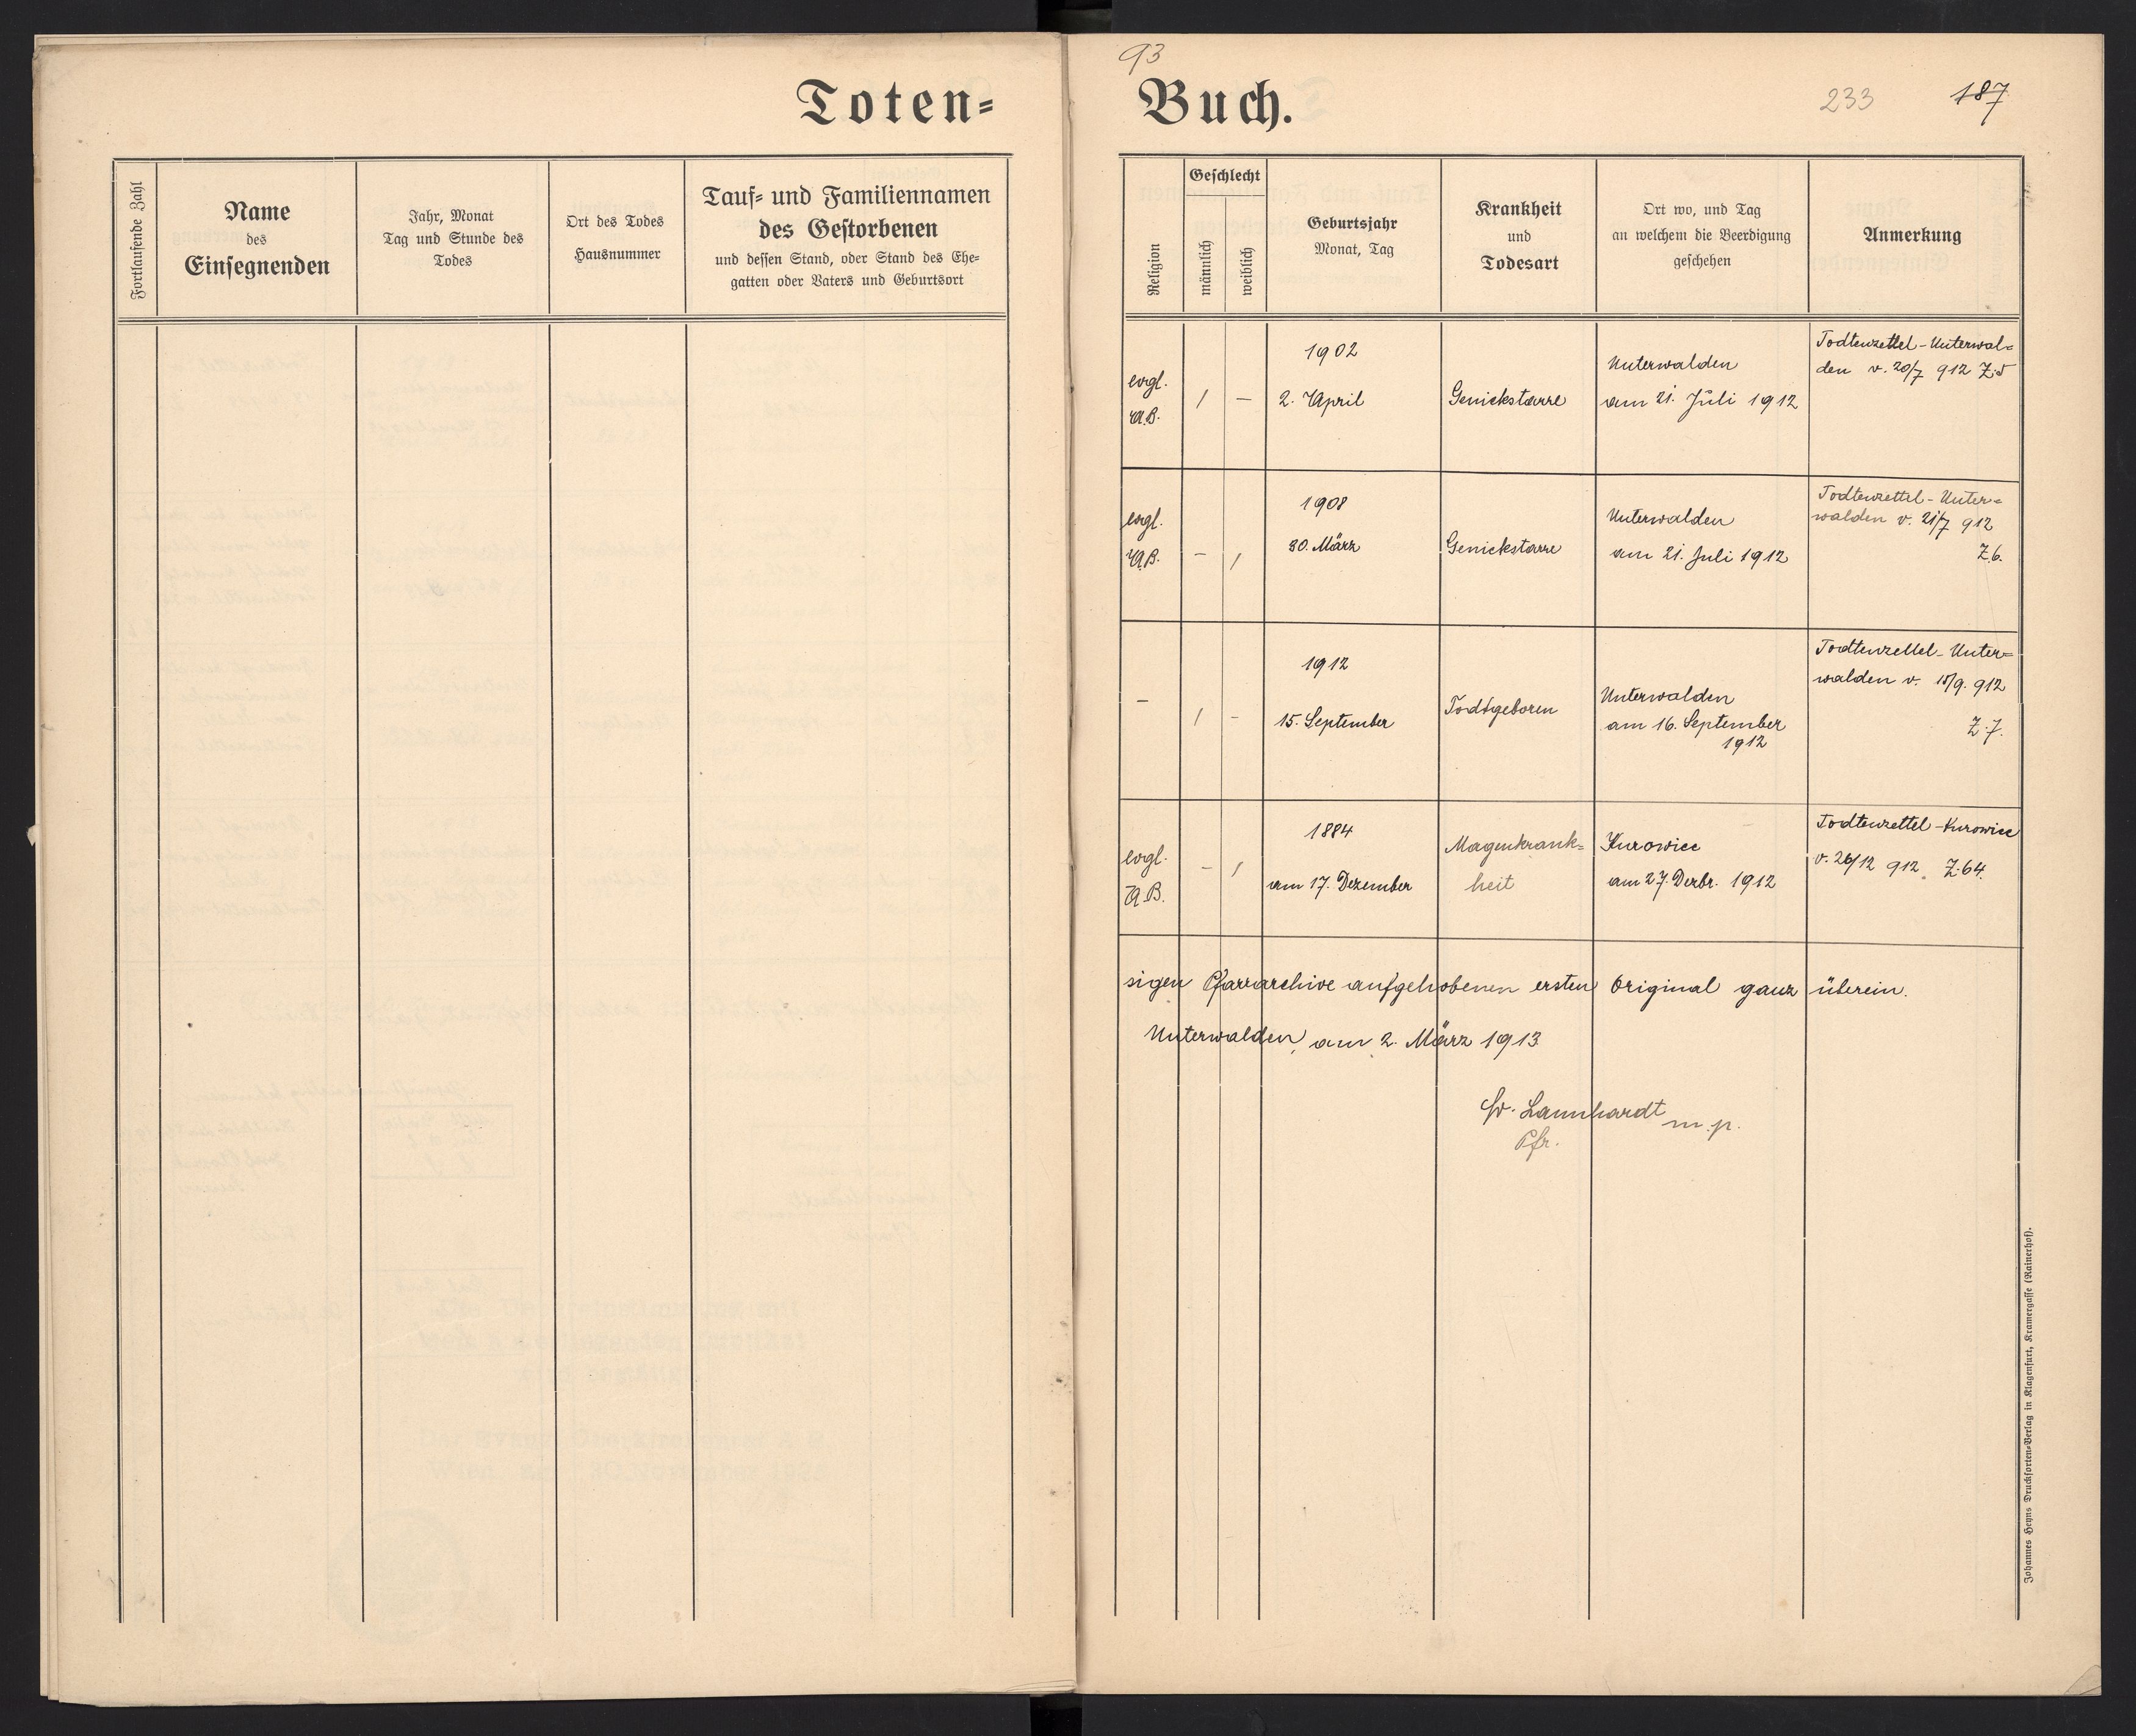 93
Toten=
Buch.
233
187
Fortlaufende Zahl
Name
des
Einsegnenden
Jahr, Monat
Tag und Stunde des
Todes
Ort des Todes
Hausnummer
Tauf= und Familiennamen
des Gestorbenen
und dessen Stand, oder Stand des Ehe=
gatten oder Vaters und Geburtsort
Religion
Geschlecht
männlich
weiblich
Geburtsjahr
Monat, Tag
Krankheit
und
Todesart
Ort wo, und Tag
an welchem die Beerdigung
geschehen
Anmerkung
evgl.
A.B.
/
—
1902
2. April
Genickstarre
Unterwalden
am 21. Juli 1912
Todtenzettel-Unterwal=
den v. 20/7 912 Z.5
evgl.
A.B.
–
/
1908
30. März
Genickstarre
Unterwalden
am 21. Juli 1912
Todtenzettel-Unter=
walden v. 21/7 912
Z.6.
–
/
–
1912
15. September
Todtgeboren
Unterwalden
am 16. September
1912
Todtenzettel-Unter=
walden v. 15/9. 912
Z.7.
evgl.
A.B.
–
/
1884
am 17. Dezember
Magenkrank=
heit
Kurowice
am 27. Dezbr. 1912
Todtenzettel-Kurowice
v. 26/12 912. Z.64.
sigen Pfarrarchive aufgehobenen ersten Original ganz überein.
Unterwalden, am 2. März 1913
Lannhardt m.p.
Pfr.
Johannes Heyns Drucksorten=Verlag in Klagenfurt, Kramergasse (Rainerhof).